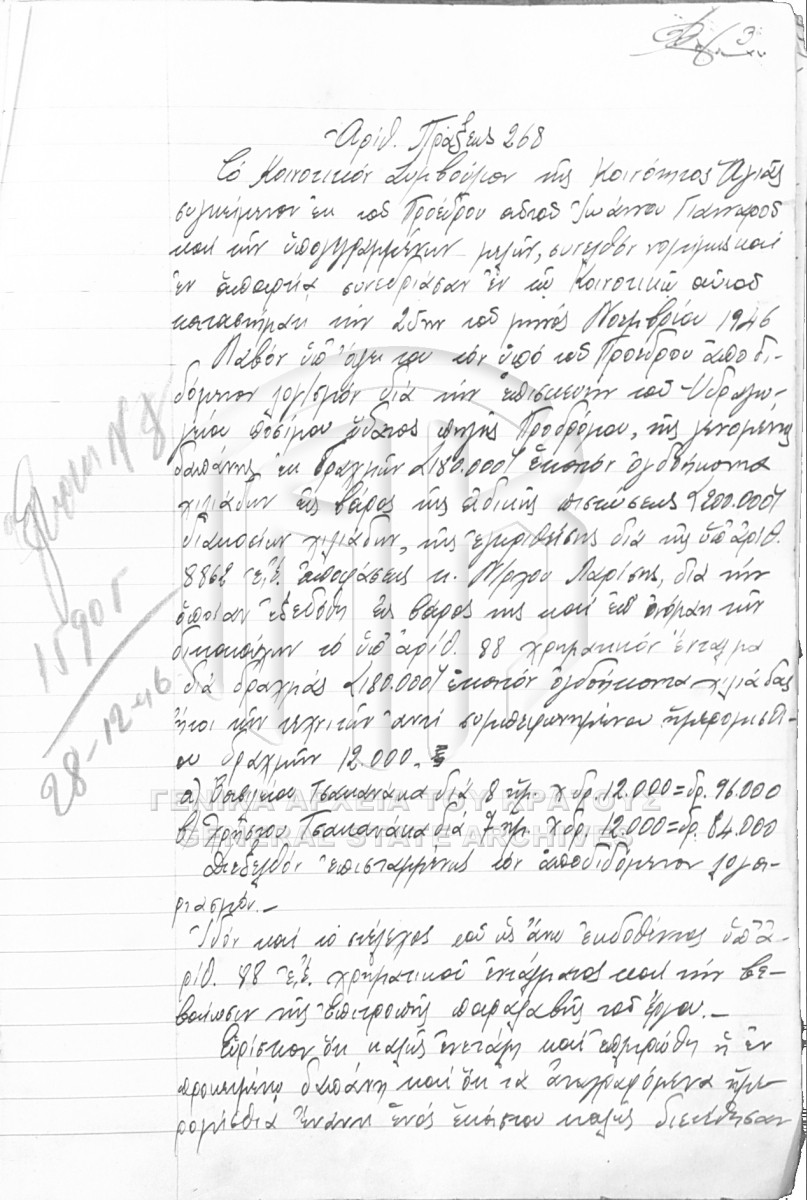 3
Ἀριθ. Πράξεως 268
Τό Κοινοτικόν Συμβούλιον τῆς Κοινότητος Ἁγιᾶς
συγκείμενον ἐκ τοῦ Προέδρου αὐτοῦ Ἰωάννου
καί τῶν ὑπογεγραμμένων μελῶν, συνελθόν νομίμως καί
ἐν ἀπαρτίᾳ συνεδριάσαν ἐν τῷ Κοινοτικῷ αὐτοῦ
καταστήματι τήν 25ην τοῦ μηνός Νοεμβρίου 1946
Λαβόν ὑπ' ὄψει του τόν ὑπό τοῦ Προέδρου ἀποδι-
δόμενον λογ/σμόν διά τήν ἐπισκευήν τοῦ Ὑδραγω-
γείου ποσίμου ὕδατος πηγῆς Προδρόμου, τῆς γενομένης
δαπάνης ἐκ δραχμῶν (180.000) ἑκατόν ὀγδοήκοντα
χιλιάδων εἰς βάρος τῆς εἰδικῆς πιστώσεως (200.000)
διακοσίων χιλιάδων, τῆς ἐγκριθείσης διά τῆς ὑπ' ἀριθ.
8862 ἐ.ἔ. ἀποφάσεως κ. Ν)ρχου Λαρίσης, διά τήν
ὁποίαν ἐξεδόθη εἰς βάρος της καί ἐπ' ὀνόματι τῶν
δικαιούχων τό ὑπ' ἀριθ. 88 χρηματικόν ἔνταλμα
διά δραχμάς (180.000) ἑκατόν ὀγδοήκοντα χιλιάδας
ἤτοι τῶν τεχνιτῶν ἀντί συμπεφωνημένου ἡμερομισθί-
ου δραχμῶν 12.000.
α) Βασιλείου Τσακανάκα διά 8 ἡμ. Χ δρ. 12.000 = δρ. 96.000
β) Χρήστου Τσακανάκα διά 7 ἡμ. Χ δρ. 12.000 = δρ. 84.000
Διεξελθόν ἐπισταμμένως τόν ἀποδιδόμενον λογα-
ριασμόν.—
Ἰδόν καί τό στέλεχος τοῦ ὡς ἄνω ἐκδοθέντος ὑπ' ἀ-
ριθ. 88 ἐ.ἔ. χρηματικοῦ ἐντάλματος καί τήν βε-
βαίωσιν τῆς ἐπιτροπῆς παραλαβῆς τοῦ ἔργου.—
Εὑρίσκον ὅτι καλῶς ἐνετάλη καί ἐπληρώθη ἡ ἐν
προκειμένῳ δαπάνη καί ὅτι τά ἀναγραφόμενα ἡμε-
ρομίσθια ἔναντι ἑνός ἑκάστου καλῶς διετέθησαν
15905
28-12-46
ΓΕΝΙΚΑ ΑΡΧΕΙΑ ΤΟΥ ΚΡΑΤΟΥΣ
GENERAL STATE ARCHIVES